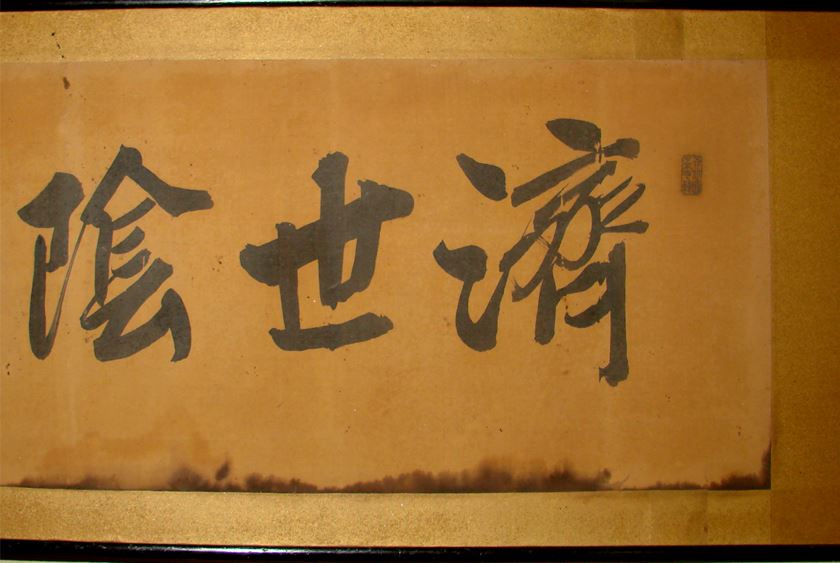 濟世陰